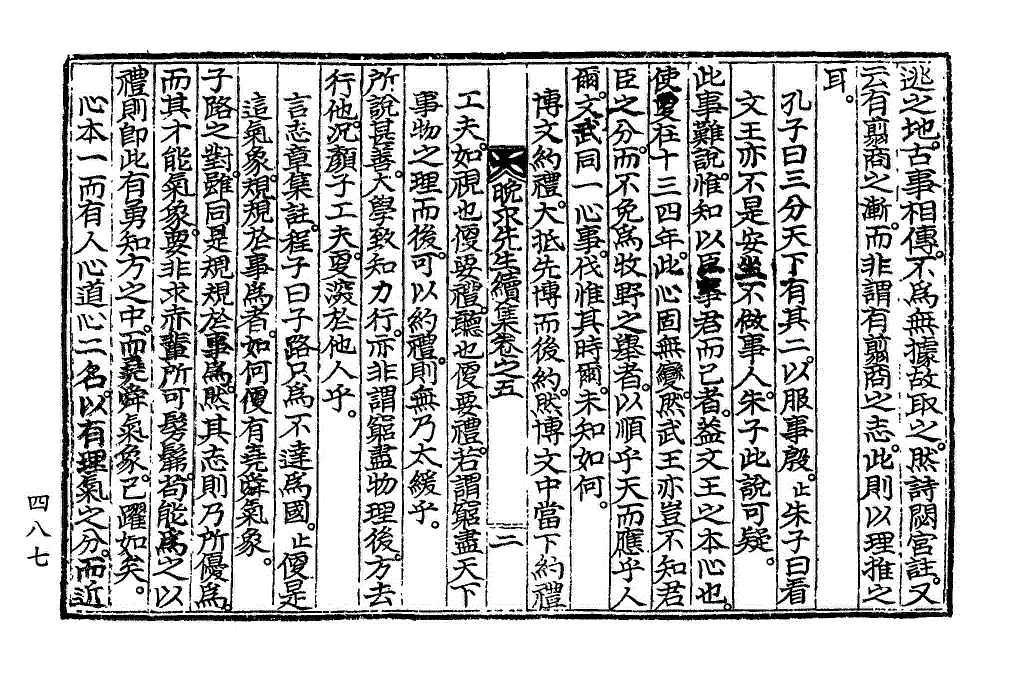 逃之地。古事相傳。不爲無據故取之。然詩閟宮註。又
云有翦商之漸。而非謂有翦商之志。此則以理推之
耳。
孔子曰三分天下有其二。以服事殷。止朱子曰看
文王亦不是安坐不做事人。朱子此說可疑。
此事難說。惟知以臣事君而已者。益文王之本心也。
使更在十三四年。此心固無變。然武王亦豈不知君
臣之分。而不免爲牧野之擧者。以順乎天而應乎人
爾。文武同一心事。伐惟其時爾。未知如何。
博文約禮。大抵先博而後約。然博文中當下約禮
晩求先生續集卷之五
二
工夫。如視也便要禮。聽也便要禮。若謂窮盡天下
事物之理而後。可以約禮。則無乃太緩乎。
所說甚善。大學致知力行。亦非謂窮盡物理後。方去
行他。况顏子工夫。更深於他人乎。
言志章集註。程子曰子路只爲不達爲國。止便是
這氣象。規規於事爲者。如何便有堯舜氣象。
子路之對。雖同是規規於事爲。然其志則乃所優爲。
而其才能氣象。要非求赤輩所可髣髴。苟能爲之以
禮則卽此有勇知方之中。而堯舜氣象。已躍如矣。
心本一而有人心道心二名。以有理氣之分。而近
四八七